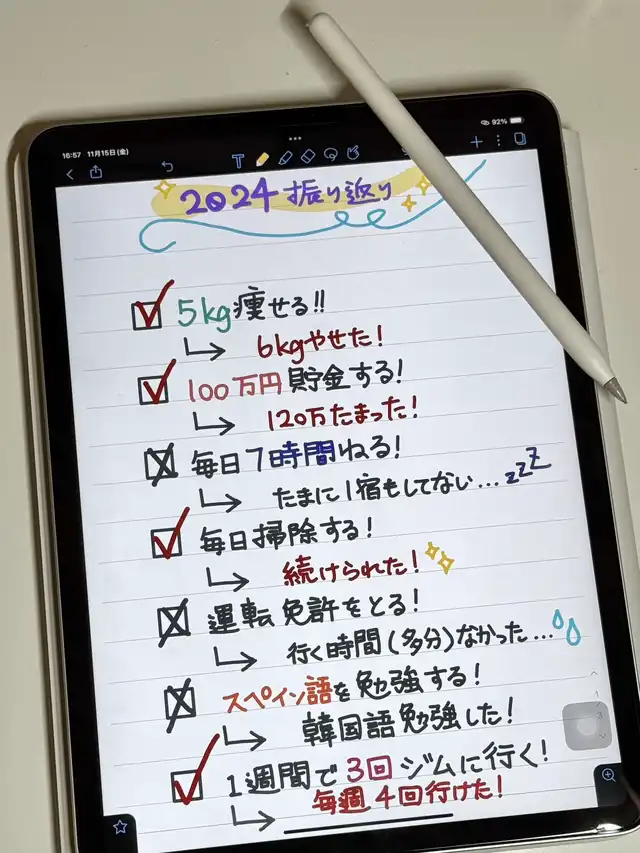 16:57 11月15日(金)
92%
2024振り返り
5kg痩せる!!
6kgやせた!
100万円貯金する!
120万たまった!
毎日7時間ねる!
たまに1宿もしてない...zzZ
毎日掃除する!
続けられた!
運転免許をとる!
行く時間(多分)なかった...
スペイン語を勉強する!
韓国語勉強した!
1週間で3回ジムに行く!
毎週4回行けた!